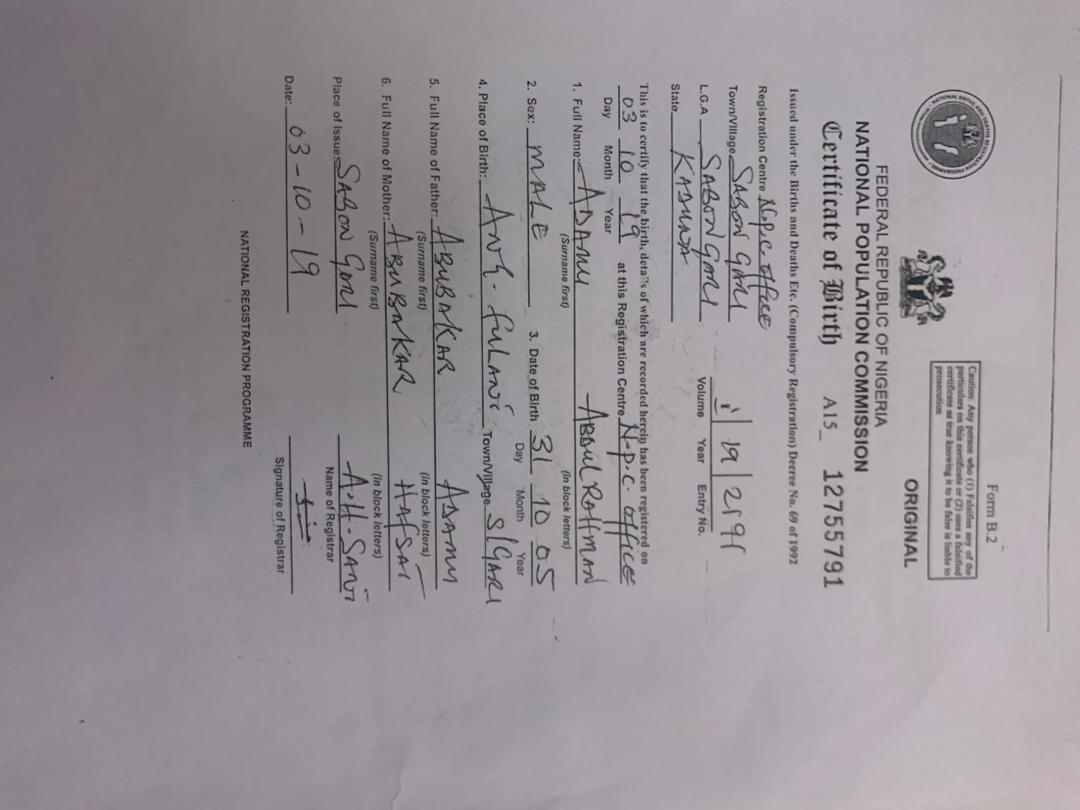 Form B.2
Caution: Any person who (1) Falsifies any of the
particulars on this certificate or (2) uses a falsified
certificate as true knowing it to be false is liable to
prosecution
FEDERAL REPUBLIC OF NIGERIA
ORIGINAL
NATIONAL POPULATION COMMISSION
Certificate of Birth A15_ 12755791
Issued under the Births and Deaths Etc. (Compulsory Registration) Decree No. 69 of 1992
Registration Centre N.p.c. office
Town/Village SABON GARI
L.G.A SABON GARI
State KADUNA
Volume Year Entry No.
This is to certify that the birth, details of which are recorded herein has been registered on
03 10 19 at this Registration Centre N.p.c. office
Day Month Year
1. Full Name: ADAMU ABDULRAHMAN
(Surname first) (in block letters)
2. Sex: MALE 3. Date of Birth 31 10 05
Day Month Year
4. Place of Birth: FULANI Town/Village S/GARI
5. Full Name of Father: ABUBAKAR ADAMU
(Surname first) (in block letters)
6. Full Name of Mother: ABUBAKAR HAFSAT
(Surname first) (in block letters)
Place of Issue: SABON GARI A.H. SANI
Name of Registrar
Date: 03-10-19
Signature of Registrar
NATIONAL REGISTRATION PROGRAMME